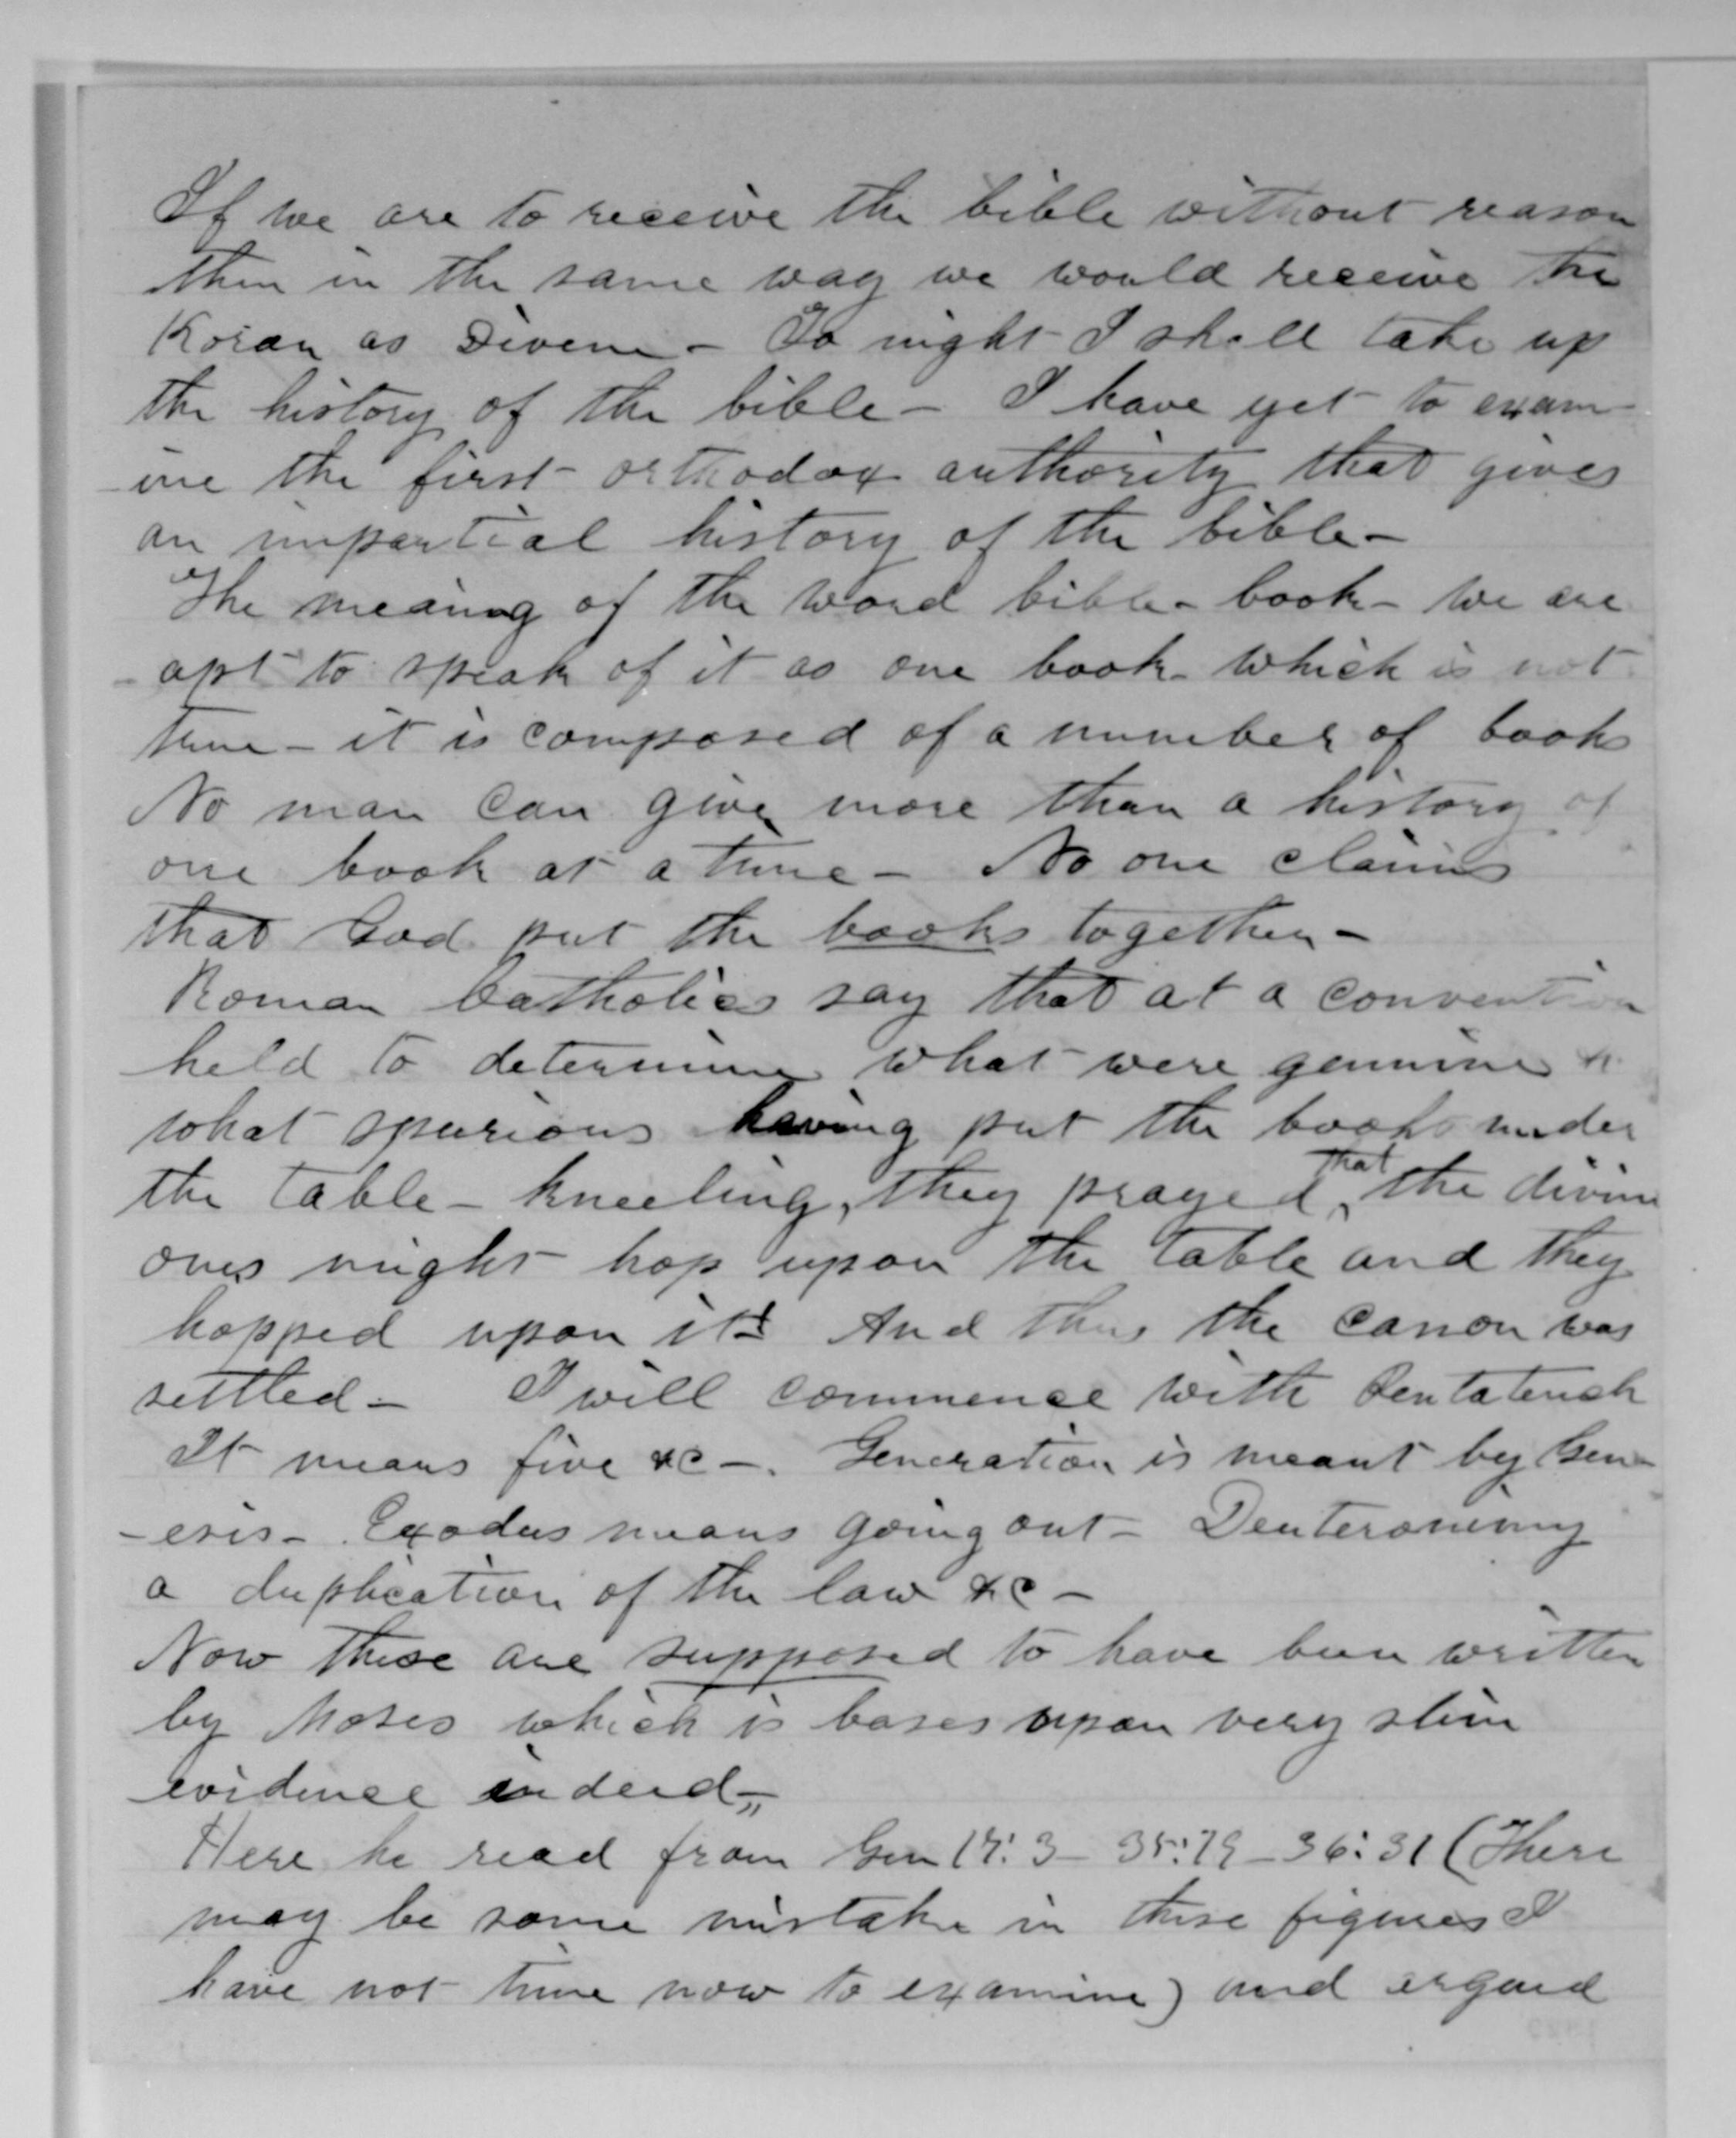 If we are to receive the bible without reason
then in the same way we would receive the
Koran as Divine - To night I shall take up
the history of the bible - I have yet to exam-
-ine the first orthodox authority that gives
an impartial history of the bible -
The meaning of the word bible - book - we are
apt to speak of it as one book - which is not
true - it is composed of a number of books
No man can give more than a history of
one book at a time - No one claims
that God put the books together -
Roman Catholics say that at a convention
held to determine what were genuine &
what spurious having put the books under
the table - kneeling, they prayed ^that the divine
ones might hop upon the table and they
hopped upon it! And thus the canon was
settled - I will commence with Pentateuch
It means five &c -. Generation is meant by Gen-
-esis - Exodus means going out - Deuteronomy
a duplication of the law &c -
Now these are supposed to have been written
by Moses which is bases upon very slim
evidence indeed -"
Here he read from Gen 3 - 36:31 (There
may be some mistake in these figures I
have not time now to examine) and argued